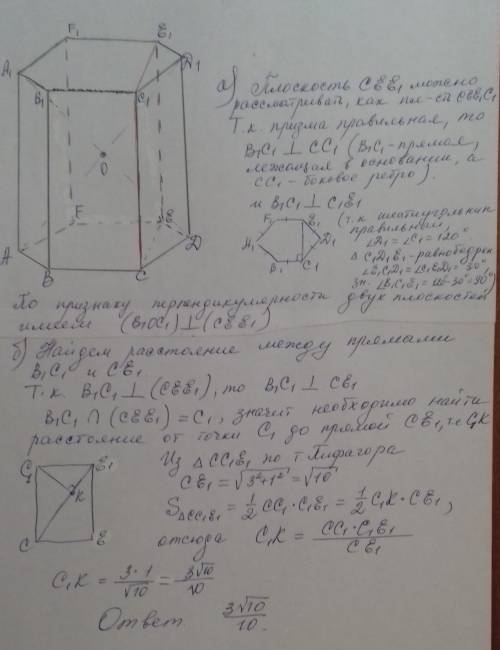 F₁
E₁
A₁
D₁
B₁
C₁
O
F
E
A
D
B
C
а) Плоскость CEE₁ можно
рассматривать, как пл-сть
Т.к. призма правильная, то
B₁C₁ ⊥ CC₁ (B₁C₁ - прямая,
лежащая в основании, а
CC₁ - боковое ребро).
и B₁C₁ ⊥ C₁E₁
(т.к шестиугольник
правильный,
∠D₁ = ∠C₁ = 120°
△ C₁D₁E₁ - равнобедрен
∠E₁C₁D₁ = ∠C₁E₁D₁ = 30°
зн. ∠B₁C₁E₁ = 120°-30° = 90°)
F₁
E₁
A₁
D₁
B₁
C₁
По признаку перпендикулярности двух плоскостей
имеем (B₁OC₁) ⊥ (CEE₁)
б) Найдем расстояние между прямыми
B₁C₁ и CE₁.
Т.к. B₁C₁ ⊥ (CEE₁), то B₁C₁ ⊥ CE₁
B₁C₁ ∩ (CEE₁) = C₁, значит необходимо найти
расстояние от точки C₁ до прямой CE₁, C₁K
C₁
E₁
K
C
E
Из △CC₁E₁ по т. Пифагора
CE₁ = √3²+1² = √10
S△CC₁E₁ = 1/2 CC₁ · C₁E₁ = 1/2 C₁K · CE₁,
отсюда C₁K = CC₁ · C₁E₁ / CE₁
C₁K = 3 · 1 / √10 = 3√10 / 10
Ответ 3√10 / 10.